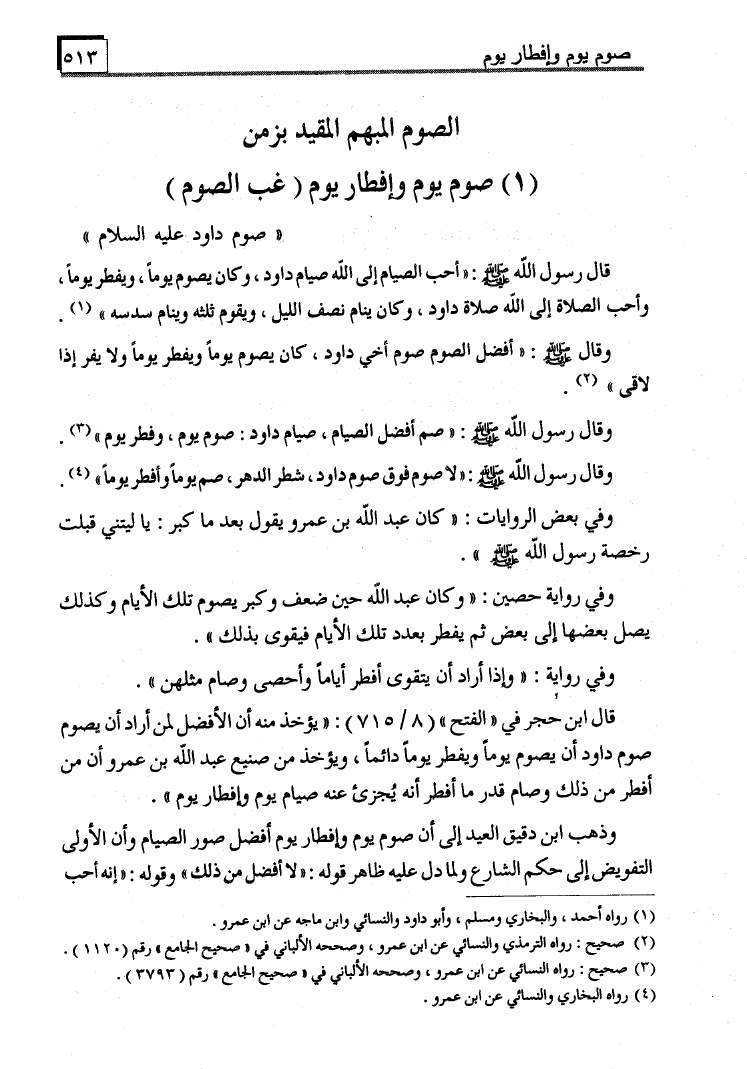 صوم يوم وإفطار يوم
٥١٣
الصوم المبهم المقيد بزمن
(١) صوم يوم وإفطار يوم ( غب الصوم )
« صوم داود عليه السلام »
قال رسول الله ﷺ : « أحب الصيام إلى الله صيام داود ، وكان يصوم يوماً ، ويفطر يوماً ،
وأحب الصلاة إلى الله صلاة داود ، وكان ينام نصف الليل ، ويقوم ثلثه وينام سدسه » (١) .
وقال ﷺ : « أفضل الصوم صوم أخي داود ، كان يصوم يوماً ويفطر يوماً ولا يفر إذا
لاقى » (٢) .
وقال رسول الله ﷺ : « صم أفضل الصيام ، صيام داود : صوم يوم ، وفطر يوم » (٣) .
وقال رسول الله ﷺ : « لا صوم فوق صوم داود ، شطر الدهر ، صم يوماً وأفطر يوماً » (٤) .
وفي بعض الروايات : « كان عبد الله بن عمرو يقول بعد ما كبر : يا ليتني قبلت
رخصة رسول الله ﷺ » .
وفي رواية حصين : « وكان عبد الله حين ضعف وكبر يصوم تلك الأيام وكذلك
يصل بعضها إلى بعض ثم يفطر بعدد تلك الأيام فيقوى بذلك » .
وفي رواية : « وإذا أراد أن يتقوى أفطر أياماً وأحصى وصام مثلهن » .
قال ابن حجر في « الفتح » (٨ / ٧١٥) : « يؤخذ منه أن الأفضل لمن أراد أن يصوم
صوم داود أن يصوم يوماً ويفطر يوماً دائماً ، ويؤخذ من صنيع عبد الله بن عمرو أن من
أفطر من ذلك وصام قدر ما أفطر أنه يُجزئ عنه صيام يوم وإفطار يوم » .
وذهب ابن دقيق العيد إلى أن صوم يوم وإفطار يوم أفضل صور الصيام وأن الأولى
التفويض إلى حكم الشارع ولما دل عليه ظاهر قوله : « لا أفضل من ذلك » وقوله : « إنه أحب
(١) رواه أحمد ، والبخاري ومسلم ، وأبو داود والنسائي وابن ماجه عن ابن عمرو .
(٢) صحيح : رواه الترمذي والنسائي عن ابن عمرو ، وصححه الألباني في « صحيح الجامع » رقم (١١٢٠) .
(٣) صحيح : رواه النسائي عن ابن عمرو ، وصححه الألباني في « صحيح الجامع » رقم ( ٣٧٩٣ ) .
(٤) رواه البخاري والنسائي عن ابن عمرو .